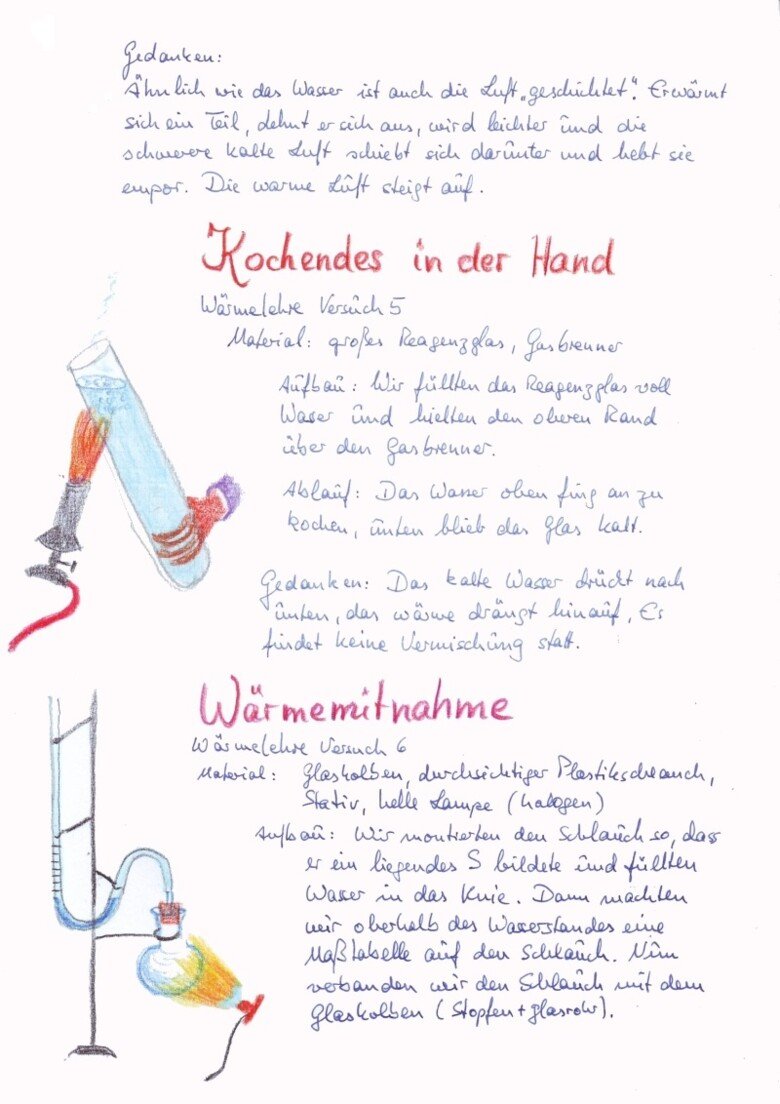 Gedanken:
Ähnlich wie das Wasser ist auch die Luft „geschichtet“. Erwärmt
sich ein Teil, dehnt er sich aus, wird leichter und die
schwere kalte Luft schiebt sich darunter und hebt sie
empor. Die warme Luft steigt auf.
Kochendes in der Hand
Wärmelehre Versuch 5
Material: großes Reagenzglas, Gasbrenner
Aufbau: Wir füllten das Reagenzglas voll
Wasser und hielten den oberen Rand
über den Gasbrenner.
Ablauf: Das Wasser oben fing an zu
kochen, unten blieb das Glas kalt.
Gedanken: Das kalte Wasser drückt nach
unten, das wärme drängt hinauf, Es
findet keine Vermischung statt.
Wärmemitnahme
Wärmelehre Versuch 6
Material: Glaskolben, durchsichtiger Plastikschlauch,
Stativ, helle Lampe (halogen)
Aufbau: Wir montierten den Schlauch so, dass
er ein liegendes S bildete und füllten
Wasser in das Knie. Dann machten
wir oberhalb des Wasserstandes eine
Maßtabelle auf den Schlauch. Nun
verbanden wir den Schlauch mit dem
Glaskolben (Stopfen + glasrohr).